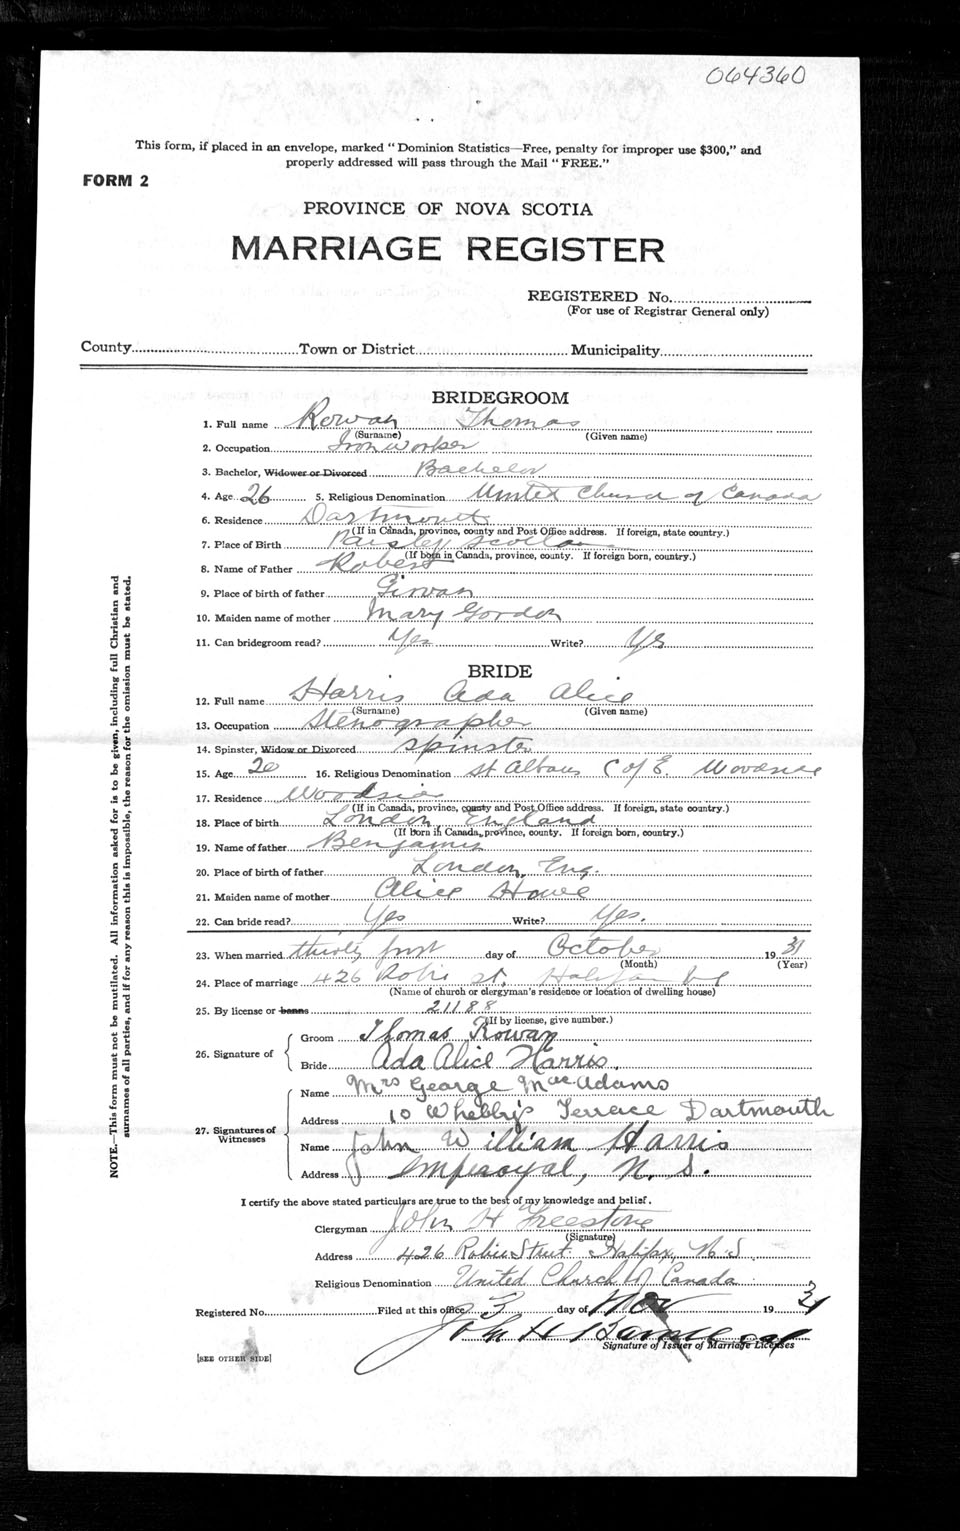 064360
This form, if placed in an envelope, marked "Dominion Statistics—Free, penalty for improper use $300," and
properly addressed will pass through the Mail "FREE."
FORM 2
PROVINCE OF NOVA SCOTIA
MARRIAGE REGISTER
REGISTERED No.
(For use of Registrar General only)
County Town or District Municipality
BRIDEGROOM
1. Full name Rowan Thomas
(Surname) (Given name)
2. Occupation Iron Worker
3. Bachelor, Widower or Divorced Bachelor
4. Age 26 5. Religious Denomination United Church of Canada
6. Residence Dartmouth
(If in Canada, province, county and Post Office address. If foreign, state country.)
7. Place of Birth Paisley Scotland
(If born in Canada, province, county. If foreign born, country.)
8. Name of Father Robert
9. Place of birth of father Girvan
10. Maiden name of mother Mary Gordon
11. Can bridegroom read? Yes Write? Yes
BRIDE
12. Full name Harris Ada Alice
(Surname) (Given name)
13. Occupation Stenographer
14. Spinster, Widow or Divorced Spinster
15. Age 20 16. Religious Denomination St Albans C of E. Woodside
17. Residence Woodside
(If in Canada, province, county and Post Office address. If foreign, state country.)
18. Place of birth London, England
(If born in Canada, province, county. If foreign born, country.)
19. Name of father Benjamin
20. Place of birth of father London, Eng.
21. Maiden name of mother Alice Howe
22. Can bride read? Yes Write? Yes.
23. When married thirty first day of October 19 31
(Month) (Year)
24. Place of marriage 426 Robie St, Halifax
(Name of church or clergyman's residence or location of dwelling house)
25. By license or banns 21188
(If by license, give number.)
26. Signature of
Groom Thomas Rowan
Bride Ada Alice Harris.
27. Signatures of Witnesses
Name Mrs George MacAdams
Address 10 Whebby's Terrace Dartmouth
Name John William Harris
Address Imperoyal, N. S.
I certify the above stated particulars are true to the best of my knowledge and belief.
Clergyman John H Freestone
(Signature)
Address 426 Robie Street Halifax, N. S.
Religious Denomination United Church of Canada
Registered No. Filed at this office 3 day of Nov 19 31
John H
Signature of Issuer of Marriage Licenses
[SEE OTHER SIDE]
NOTE.—This form must not be mutilated. All information asked for is to be given, including full Christian and
surnames of all parties, and if for any reason this is impossible, the reason for the omission must be stated.